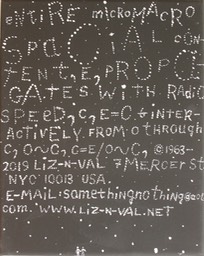 eNTiRE microMACRO
SpaCiAL CON-
TENT, E, PROPA
GATES WiTH RADiO
SPEED, C, E=C. INTER-
ACTiVELY. FROM O THROUGH
C, O~C, C=E/O~C, ©1963-
2019 LiZ-N-VAL 7 MERCER ST
NYC 10013 USA.
E-MAiL: somethingnothing@aol
com. WWW.LiZ-N-VAL.NET